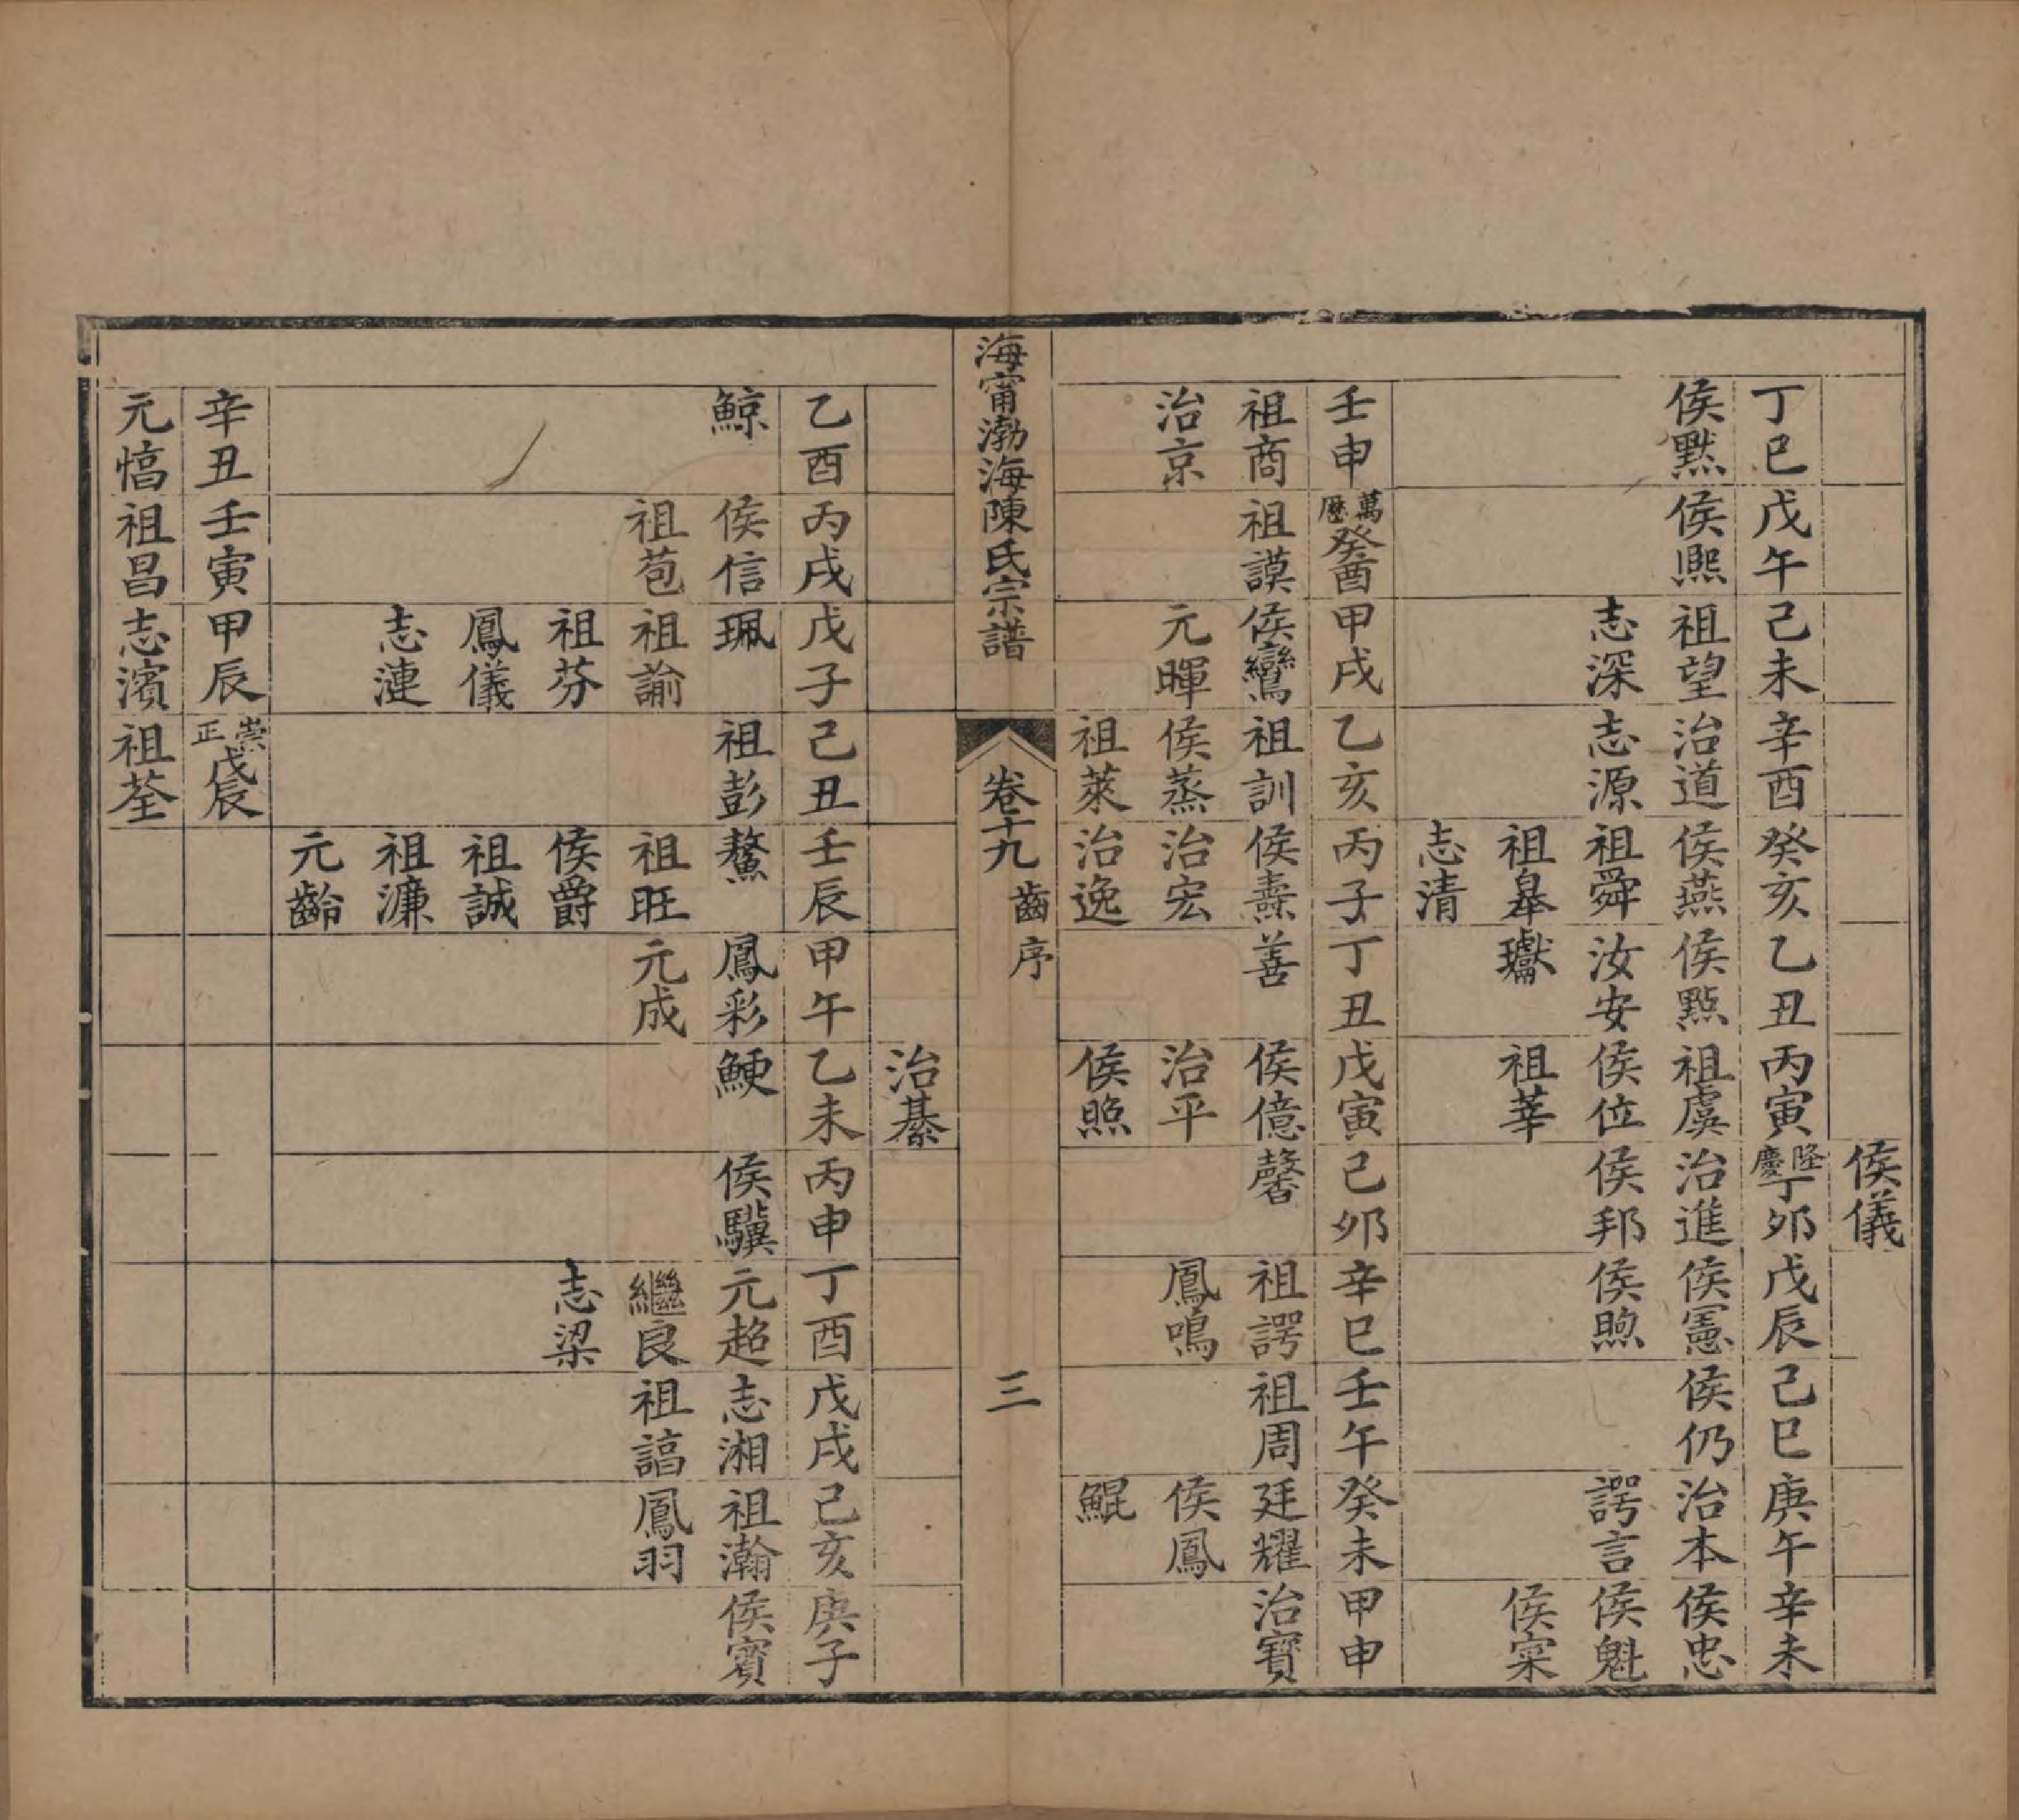 侯儀
丁巳 戊午 己未 辛酉 癸亥 乙丑 丙寅 隆慶丁卯 戊辰 己巳 庚午 辛未
侯黙 侯熈 祖望 治道 侯燕 侯㸃 祖虞 治進 侯憲 侯仍 治本 侯忠
志深 志源 祖舜 汝安 侯位 侯邦 侯煦 諤言 侯魁
祖皋 瓛 祖莘 侯寀
志清
壬申 萬歷癸酉 甲戌 乙亥 丙子 丁丑 戊寅 己卯 辛巳 壬午 癸未 甲申
祖商 祖謨 侯鸞 祖訓 侯燾 善 侯億 馨 祖諤 祖周 廷耀 治寶
治京 元暉 侯蒸 治宏 治平 鳳鳴 侯鳳
祖萊 治逸 侯煦 鯤
海甯渤海陳氏宗譜 卷十九 齒序 三
治綦
乙酉 丙戌 戊子 己丑 壬辰 甲午 乙未 丙申 丁酉 戊戌 己亥 庚子
鯨 侯信 珮 祖彭 鰲 鳳彩 鯁 侯驥 元超 志湘 祖瀚 侯賓
祖苞 祖諭 祖旺 元成 繼良 祖謟 鳳羽
祖芬 侯爵 志梁
鳳儀 祖誠
志漣 祖濂
元齡
辛丑 壬寅 甲辰 崇正戊辰
元愊 祖昌 志濱 祖荃